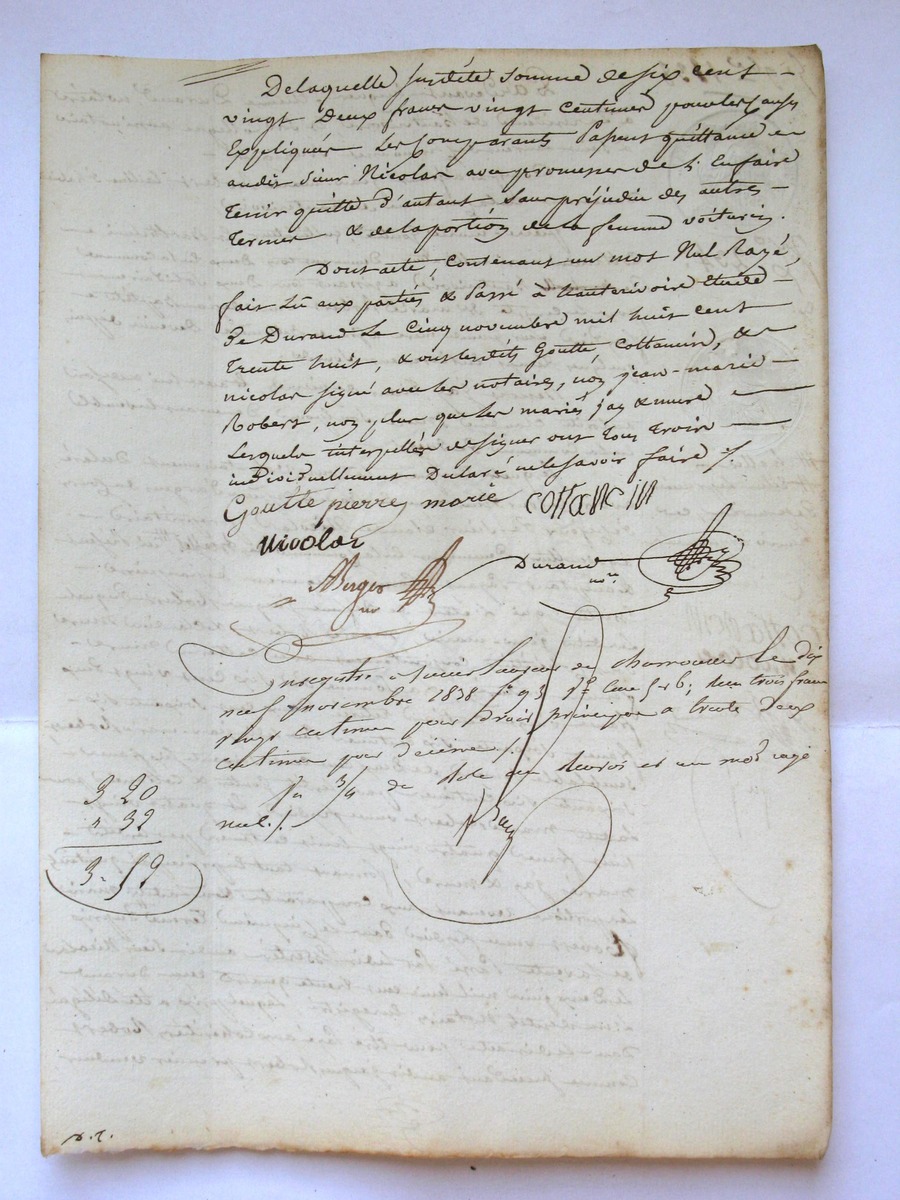 De laquelle susdite somme de six cent
vingt Deux francs vingt centimes pour les causes
Expliquées Les Comparants Passent quittance
audit sieur Nicolas avec promesse de l'Enfaire
Tenir quitte d'autant sans préjudice des autres
Termes & de la portion de la femme voiturin.
Dont acte, contenant un mot Nul Rayé,
fait Lû aux parties & Passé à hauterivoire Etude
De Durand Le Cinq novembre mil huit cent
Trente huit, & ont lesdits Goutte, Cottancin, &
nicolas signé avec les notaires, non jean-marie
Robert, non plus que les mariés jay & mure
Lesquels interpellés de signer ont Tous Trois
individuellement Déclaré ne le savoir faire /.
Goutte pierre marie cottancin
Nicolas
Berger
nre
Durand
nre
Enregistré à le dix
neuf novembre 1838 f° 93 ; Reçu trois francs
vingt centimes pour Droit principal & trente Deux
centimes pour décime /.
un mot rayé
nul /.
3 20
" 32
3 - 52